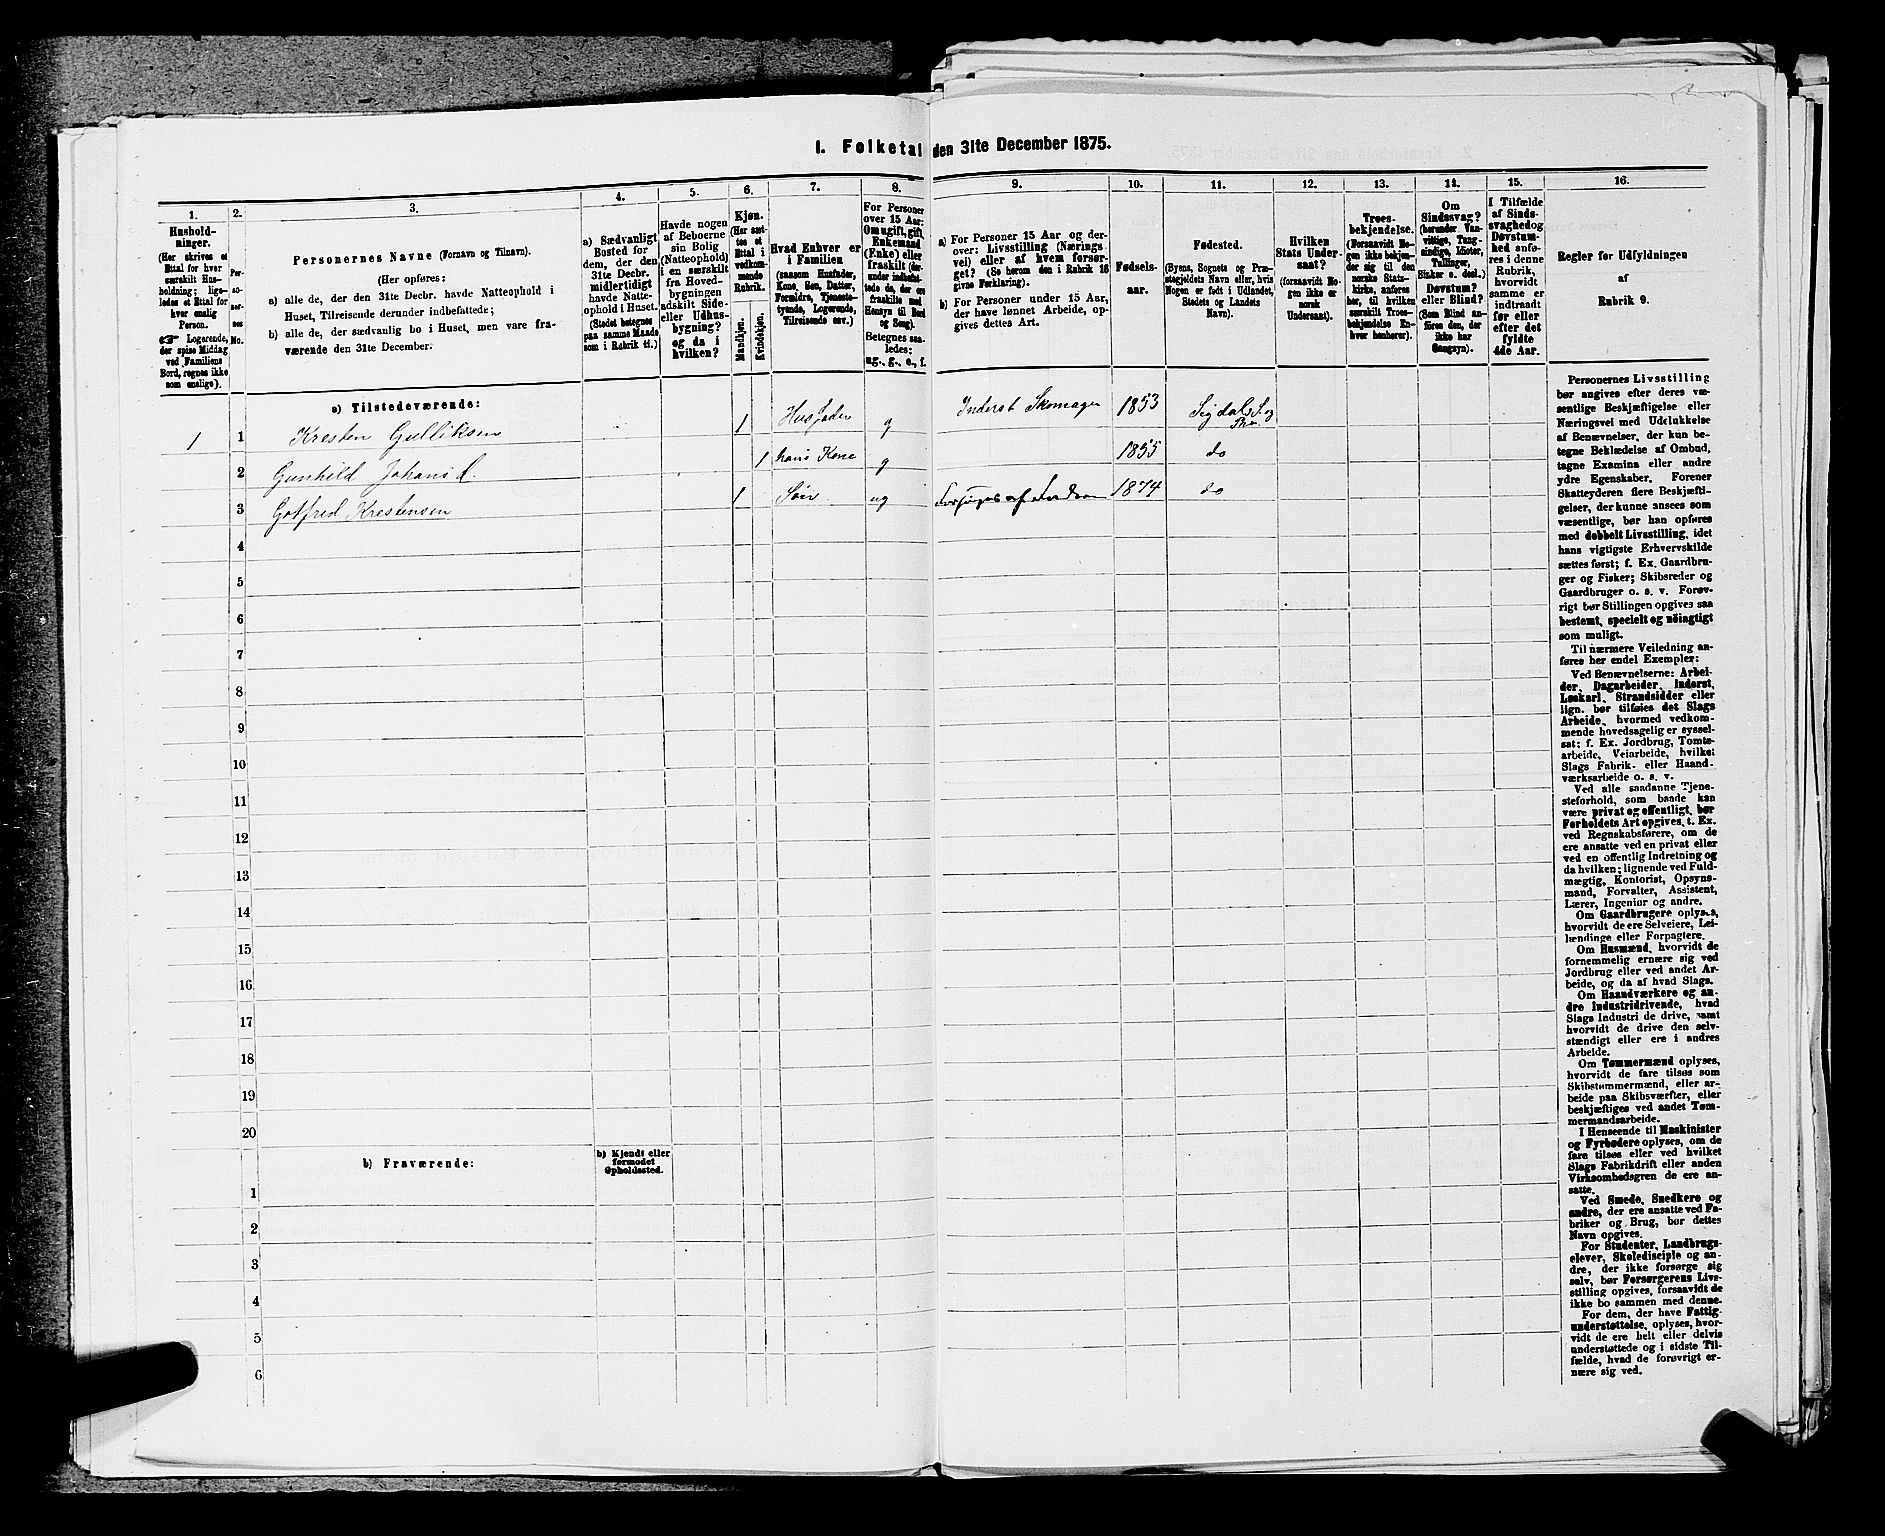 I. Folketal den 31te December 1875.
1.
2.
3.
4.
5.
6.
7.
8.
9.
10.
11.
12.
13.
14.
15.
16.
Hushold-
ninger.
(Her skrives et
Ettal for hver
særskilt Hus-
holdning; lige-
ledes et Ettal for
hver enslig
Person.
☞ Logerende,
der spise Middag
ved Familiens
Bord, regnes ikke
som enslige).
Per-
so-
ner-
nes
No.
Personernes Navne (Fornavn og Tilnavn).
(Her opføres:
a) alle de, der den 31te Decbr. havde Natteophold i
Huset, Tilreisende derunder indbefattede;
b) alle de, der sædvanlig bo i Huset, men vare fra-
værende den 31te December.
a) Sædvanligt
Bosted for
dem, der den
31te Decbr.
midlertidigt
havde Natte-
ophold i Huset.
(Stedet betegnes
paa samme Maade
som i Rubrik 11.)
Havde nogen
af Beboerne
sin Bolig
(Natteophold)
i en særskilt
fra Hoved-
bygningen
adskilt Side-
eller Udhus-
bygning?
og da i
hvilken?
Kjøn.
(Her sæt-
tes et
Ettal i
vedkom-
mende
Rubrik.
Mandkjøn.
Kvindekjøn.
Hvad Enhver er
i Familien
(saasom Husfader,
Kone, Søn, Datter,
Forældre, Tjeneste-
tyende, Logerende,
Tilreisende osv.)
For Personer
over 15 Aar:
Om ugift, gift,
Enkemand
(Enke) eller
fraskilt (der-
under indbefat-
tede de, der ere
fraskilte med
Hensyn til Bord
og Seng).
Betegnes saa-
ledes:
ug., g., e., f.
a) For Personer 15 Aar og der-
over: Livsstilling (Nærings-
vei) eller af hvem forsør-
get? (Se herom den i Rubrik 16
givne Forklaring).
b) For Personer under 15 Aar,
der have lønnet Arbeide, op-
gives dettes Art.
Fødsels-
aar.
Fødested.
(Byens, Sognets og Præ-
stegjeldets Navn eller, hvis
Nogen er født i Udlandet,
Stedets og Landets
Navn).
Hvilken
Stats Under-
saat?
(forsaavidt No-
gen ikke er
norsk
Undersaat).
Troes-
bekjendelse.
(Forsaavidt No-
gen ikke bekjen-
der sig til den
norske Stats-
kirke, anføres
her, til hvilken
særskilt Troes-
bekjendelse En-
hver henhører).
Om
Sindssvag?
(herunder Van-
vittige, Tung-
sindige, Idioter,
Tullinger,
Sinker o. desl.)
Døvstum?
eller Blind?
(Som Blind an-
føres den, der
ikke har
Gangsyn).
I Tilfælde
af Sinds-
svaghed og
Døvstum-
hed anfø-
res i denne
Rubrik,
hvorvidt
samme er
indtraadt
før eller
efter det
fyldte
4de Aar.
Regler for Udfyldningen
af
Rubrik 9.
a) Tilstedeværende:
1 1 Kresten Gulliksen 1 Husfader g Inderst Skomager 1853 Sigdals S. og
2 Gunhild Johansd. 1 hans Kone g 1855 do
3 Gotfred Krestensen 1 Søn ug Forsørges af Faderen 1874 do
4
5
6
7
8
9
10
11
12
13
14
15
16
17
18
19
20
b) Fraværende:
b) Kjendt eller
formodet
Opholdssted.
1
2
3
4
5
6
Personernes Livsstilling
bør angives efter deres væ-
sentlige Beskjæftigelse eller
Næringsvei med Udelukkelse
af Benævnelser, der kun be-
tegne Beklædelse af Ombud,
tagne Examina eller andre
ydre Egenskaber. Forener
Skatteyderen flere Beskjæfti-
gelser, der kunne ansees som
væsentlige, bør han opføres
med dobbelt Livsstilling, idet
hans vigtigste Erhvervskilde
sættes først; f. Ex. Gaardbru-
ger og Fisker; Skibsreder og
Gaardbruger o. s. v. Forøv-
rigt bør Stillingen opgives saa
bestemt, specielt og nöiagtigt
som muligt.
Til nærmere Veiledning an-
føres her endel Exempler:
Ved Benævnelserne: Arbei-
der, Dagarbeider, Inderst,
Løskarl, Strandsidder eller
lign. bør tilføies det Slags
Arbeide, hvormed vedkom-
mende hovedsagelig er syssel-
sat; f. Ex. Jordbrug, Tomte-
arbeide, Veiarbeide, hvilket
Slags Fabrik- eller Haand-
værksarbeide o. s. v.
Ved alle saadanne Tjene-
steforhold, som baade kan
være privat og offentligt, bør
Forholdets Art opgives, t. Ex.
ved Regnskabsførere, om de
ere ansatte ved en privat eller
ved en offentlig Indretning og
da hvilken; lignende ved Fuld-
mægtig, Kontorist, Opsyns-
mand, Forvalter, Assistent,
Lærer, Ingeniør og andre.
Om Gaardbrugere oplyses,
hvorvidt de ere Selveiere, Lei-
lændinge eller Forpagtere.
Om Husmænd, hvorvidt de
fornemmelig ernære sig ved
Jordbrug eller ved andet Ar-
beide, og da af hvad Slags.
Om Haandværkere og an-
dre Industridrivende, hvad
Slags Industri de drive, samt
hvorvidt de drive den selv-
stændigt eller ere i andres
Arbeide.
Om Tømmermænd oplyses,
hvorvidt de fare tilsøs som
Skibstømmermænd, eller ar-
beide paa Skibsværfter, eller
beskjæftiges ved andet Tøm-
mermandsarbeide.
I Henseende til Maskinister
og Fyrbødere oplyses, om de
fare tilsøs eller ved hvilket
Slags Fabrikdrift eller anden
Virksomhedsgren de ere an-
satte.
Ved Smede, Snedkere og
andre, der ere ansatte ved Fa-
briker og Brug, bør dettes
Navn opgives.
For Studenter, Landbrugs-
elever, Skoledisciple og an-
dre, der ikke forsørge sig
selv, bør Forsørgerens Livs-
stilling opgives, forsaavidt de
ikke bo sammen med denne.
For dem, der have Fattig-
understøttelse, oplyses, hvor-
vidt de ere helt eller delvis
understøttede og i sidste Til-
fælde, hvad de forøvrigt er-
nære sig ved.